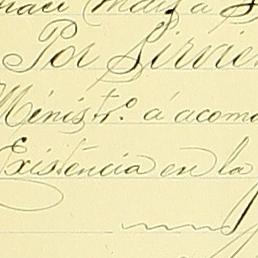 Diaz a
Por Sirvie
Ministr.º á acom
Existéncia en la